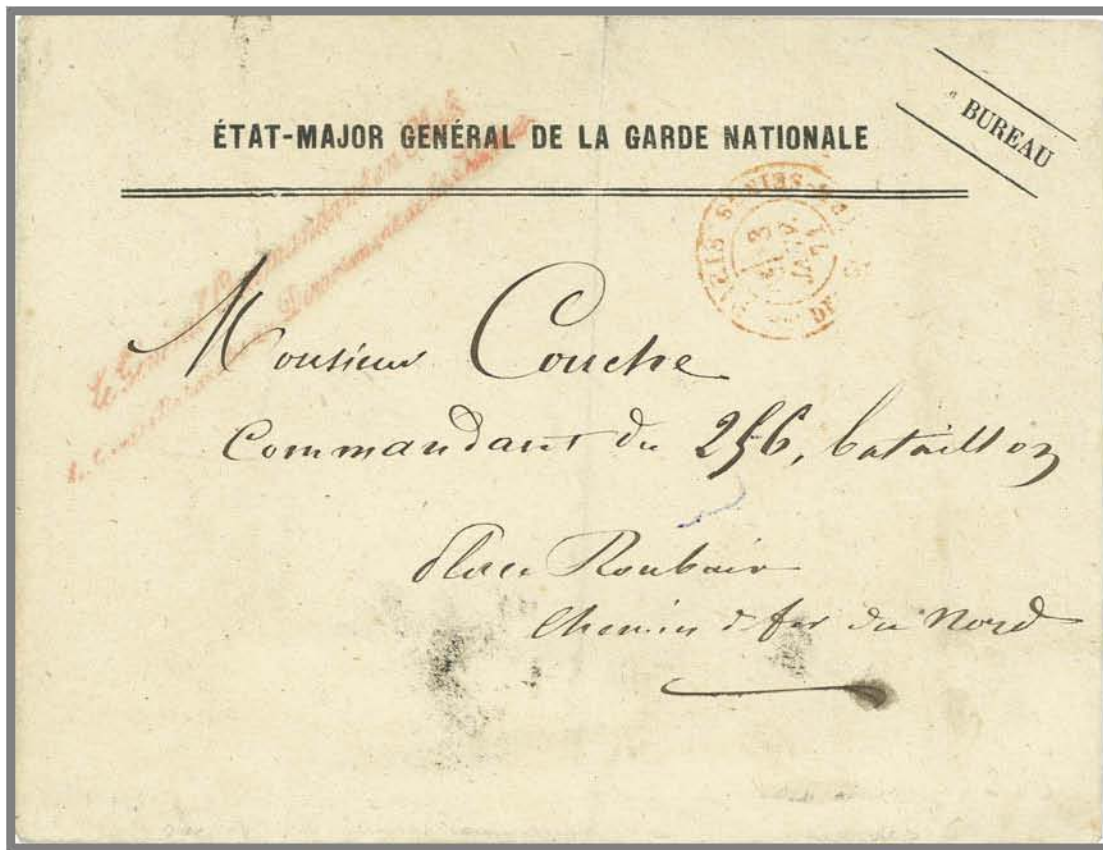 " BUREAU
ÉTAT-MAJOR GENÉRAL DE LA GARDE NATIONALE
Le Général Commandant en Chef
Monsieur Couche
Commandant du 256, bataillon
Place Roubaix
Chemin d fer du Nord